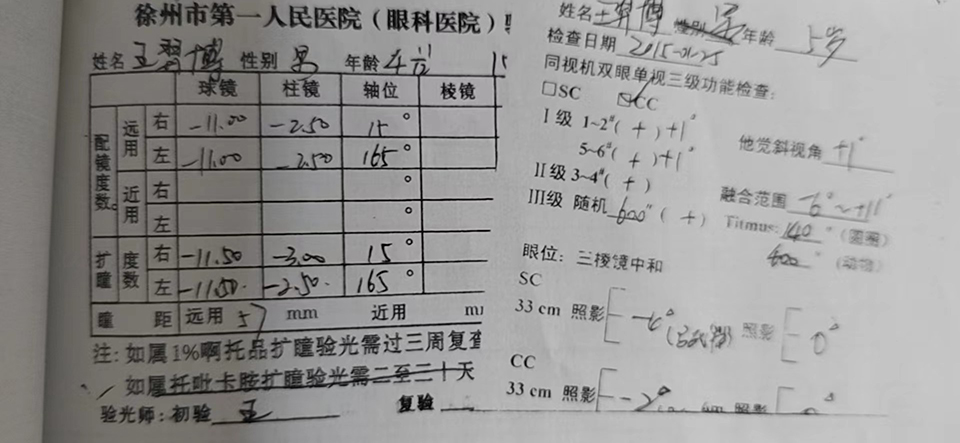 徐州市第一人民医院（眼科医院）
姓名 王翌博 性别 男 年龄 4
球镜 柱镜 轴位 棱镜
配镜度数。 远用 右 -11.00 -2.50 15°
左 -11.00 -2.50 165°
近用 右 °
左 °
扩瞳 度数 右 -11.50 -3.00 15°
左 -11.50. -2.50. 165°
瞳 距 远用 57 mm 近用
注:如属1%啊托品扩瞳验光需过三周复查
如属托吡卡胺扩瞳验光需二至三十天
验光师:初验 王 复验
姓名 王翌博 性别 年龄 5岁
检查日期 2015-01-25
同视机双眼单视三级功能检查:
□SC ☑CC
I级 1~2#( + ) +1°
5~6#( + ) +1°
他觉斜视角 +1°
II级 3~4#( + )
III级 随机 600" ( + )
融合范围 -6°~+11°
Titmus: 140 "（圆圈）
400 "（动物）
眼位: 三棱镜中和
SC
33 cm 照影 照影 0°
CC
33 cm 照影 -2° cm 照影 0°